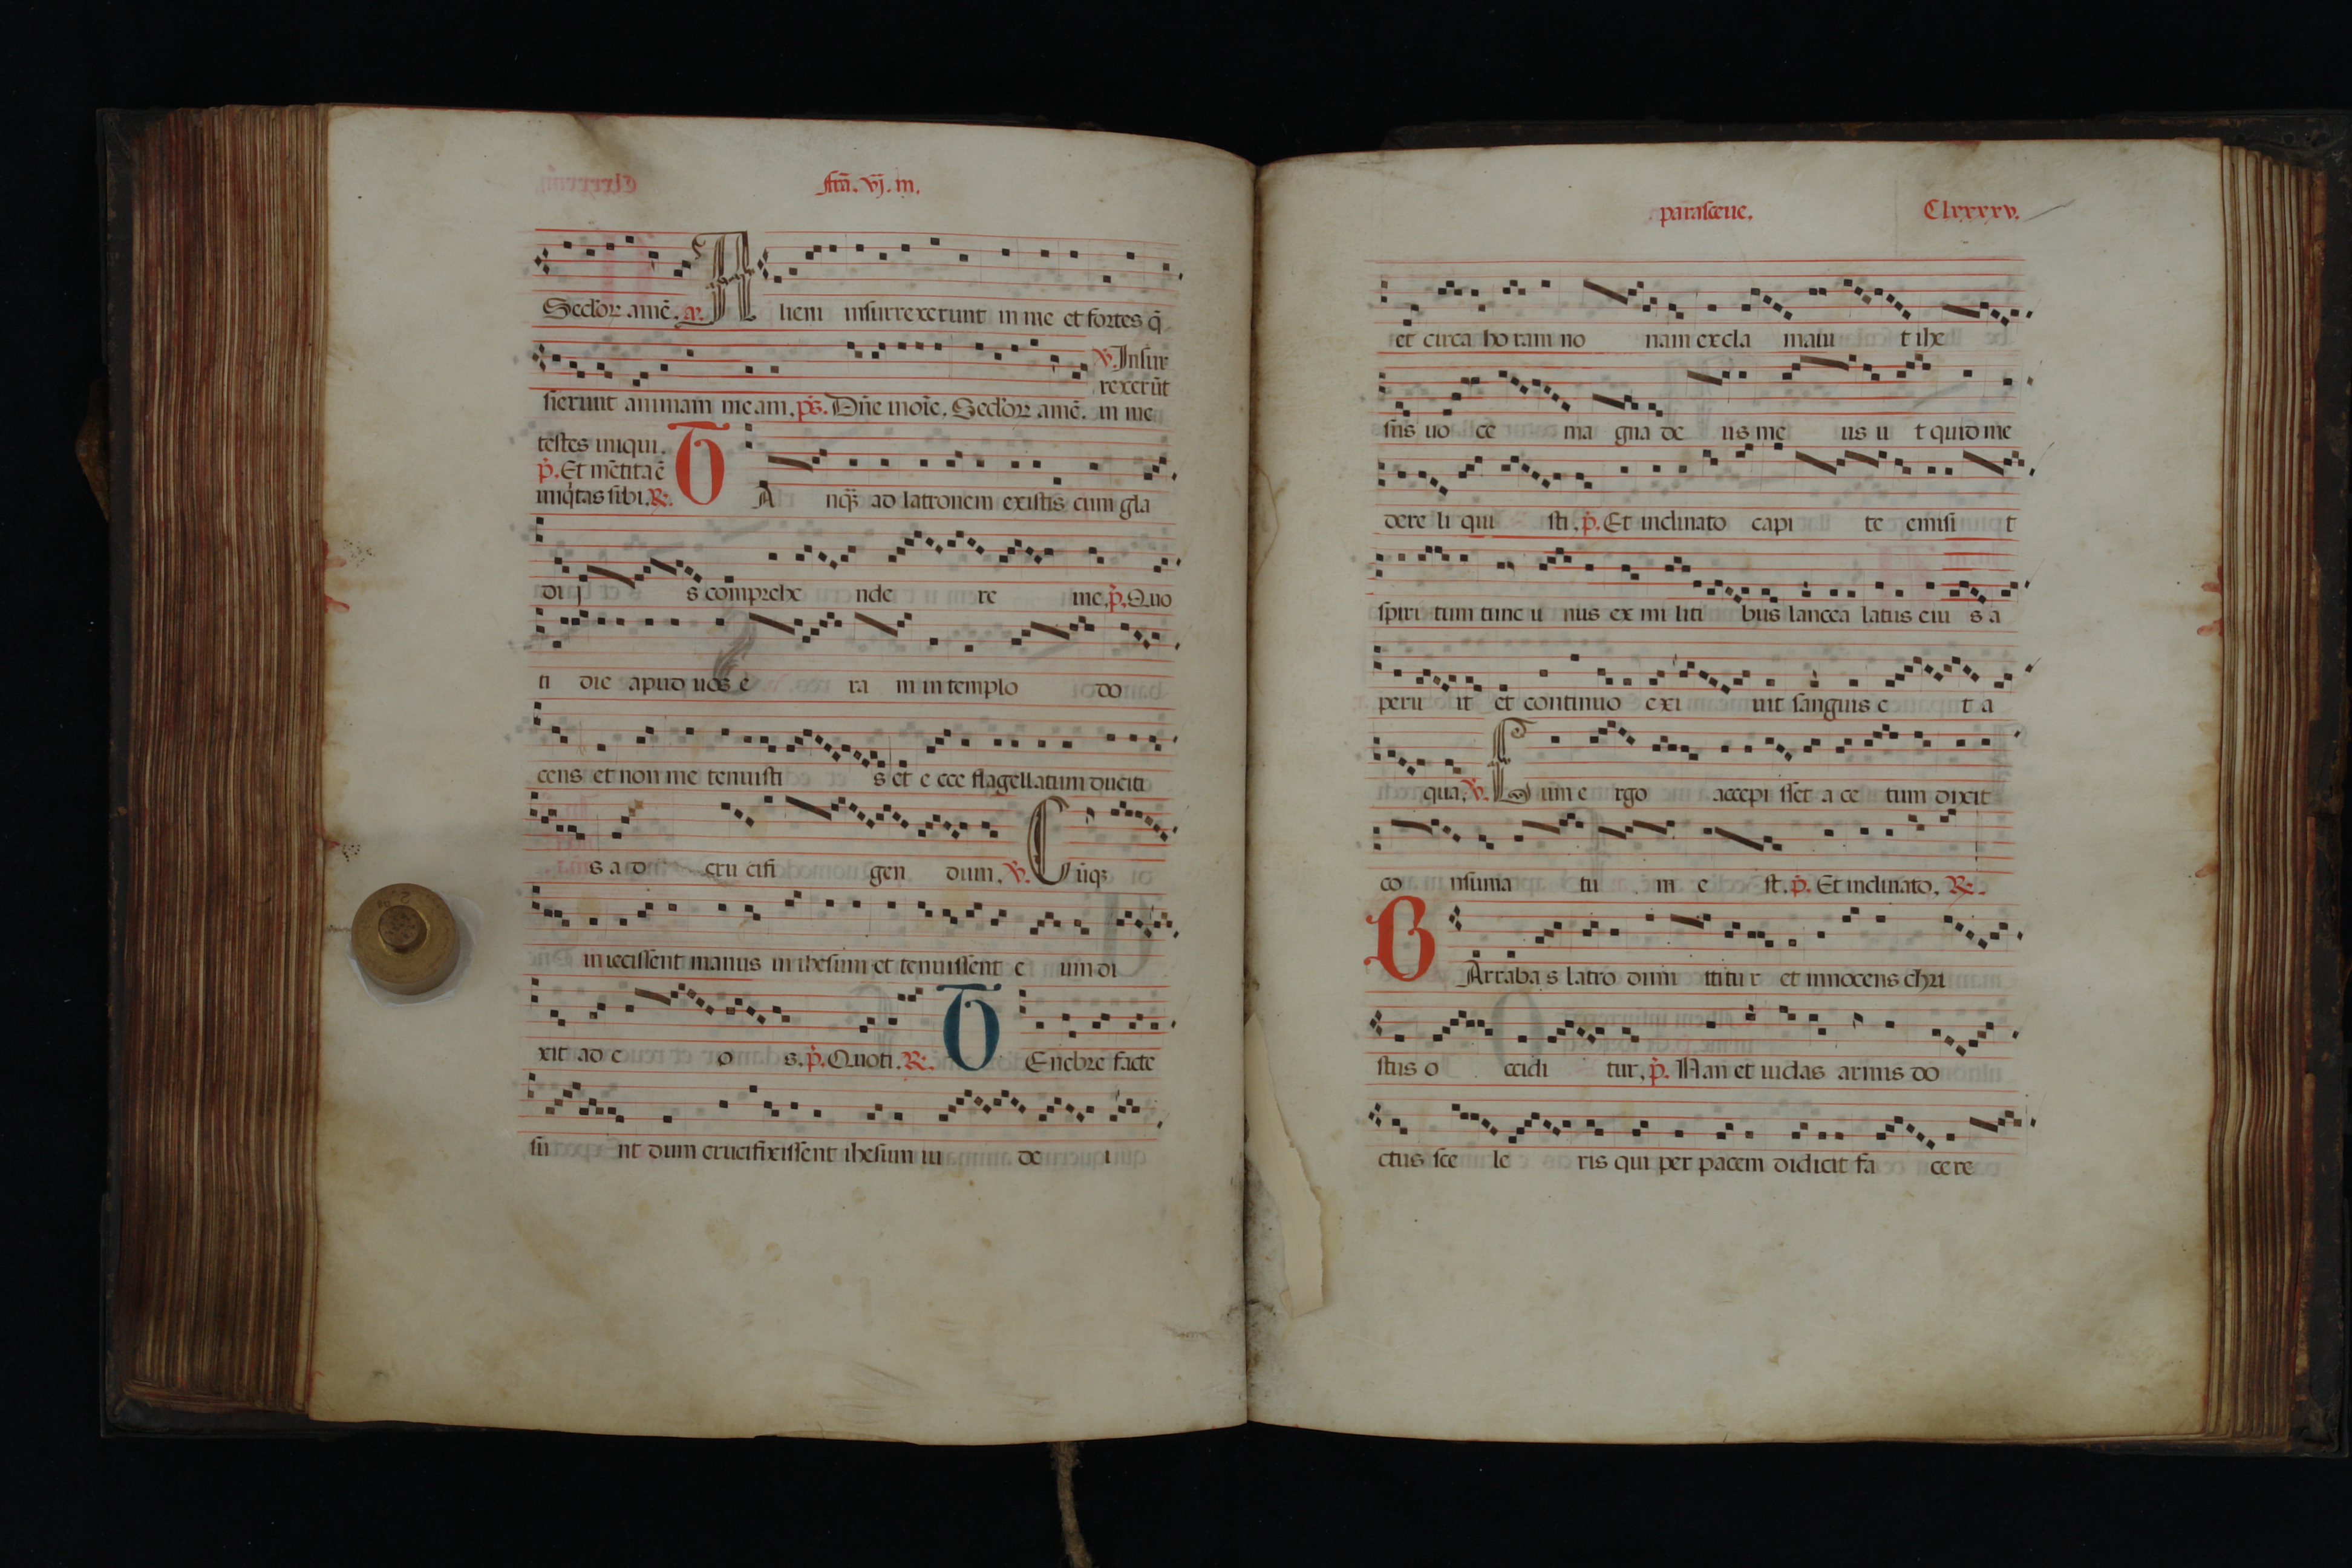 fr̃ia. vj. in.
Seclor̃. amē. a. A lieni insurrexerunt in me et fortes q̄
sierunt animam meam. ps. Dñe inoĩe. Seclor̃. amē. ℣. Insur
rexerūt
in me
testes iniqui.
p̃. Et mētita ē
iniq̃tas sibi. ℟. T A nq̃ ad latronem existis cum gla
di j s comprehe nde re me. p̃. Quo
ti die apud uos e ra m in templo do
cens et non me tenuisti s et e cce flagellatum duciti
s a d cru cifi gen dum. ℣. C ūq̃
iniecissent manus in ihesum et tenuissent e um di
xit ad e o s. p̃. Quoti. ℟. T Enebre facte
su nt dum crucifixissent ihesum iu de i
parasceue. Clxxxxv.
et circa ho ram no nam excla mauit t ihe
sus uo ce ma gna de us me us u t quid me
dere li qui sti. p̃. Et inclinato capi te emisi t
spiri tum tunc u nus ex mi liti bus lancea latus eiu s a
peru it et continuo exi uit sanguis e t a
qua. ℣. C um e rgo accepi sset a ce tum dixit
co nsuma tu m e st. p̃. Et inclinato. ℟.
B Arraba s latro dimi ttitu r et innocens chri
stus o ccidi tur. p̃. Nan et iudas armis do
ctus sce le ris qui per pacem didicit fa ce re